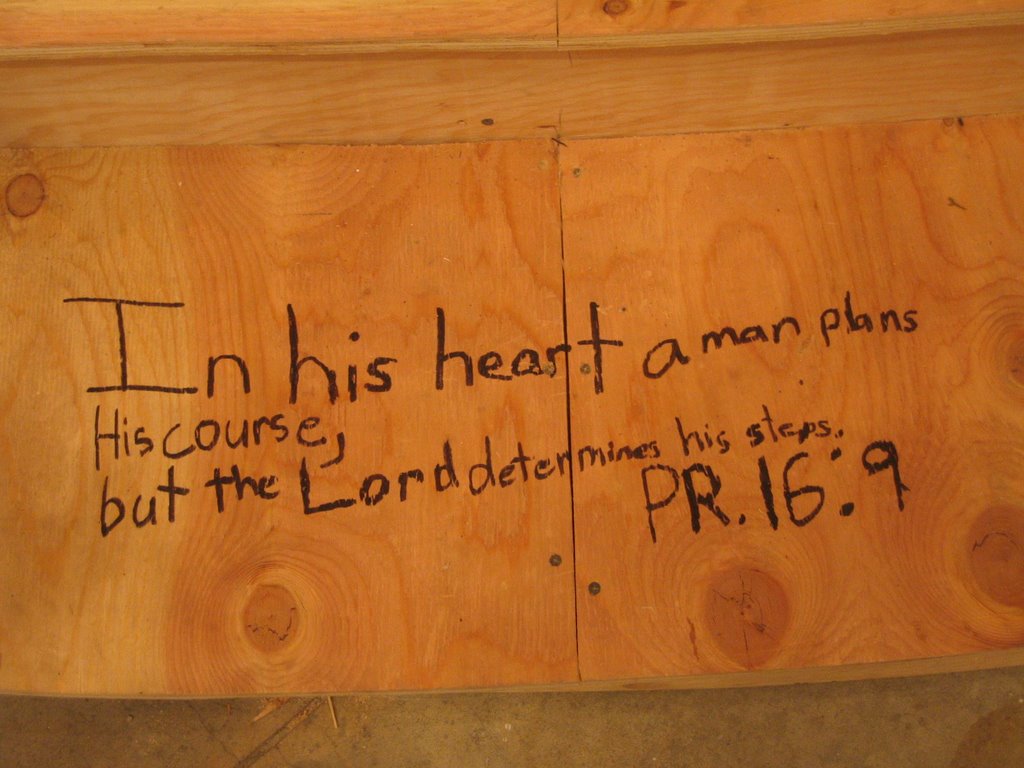 In his heart a man plans
His course,
but the Lord determines his steps.
PR. 16:9